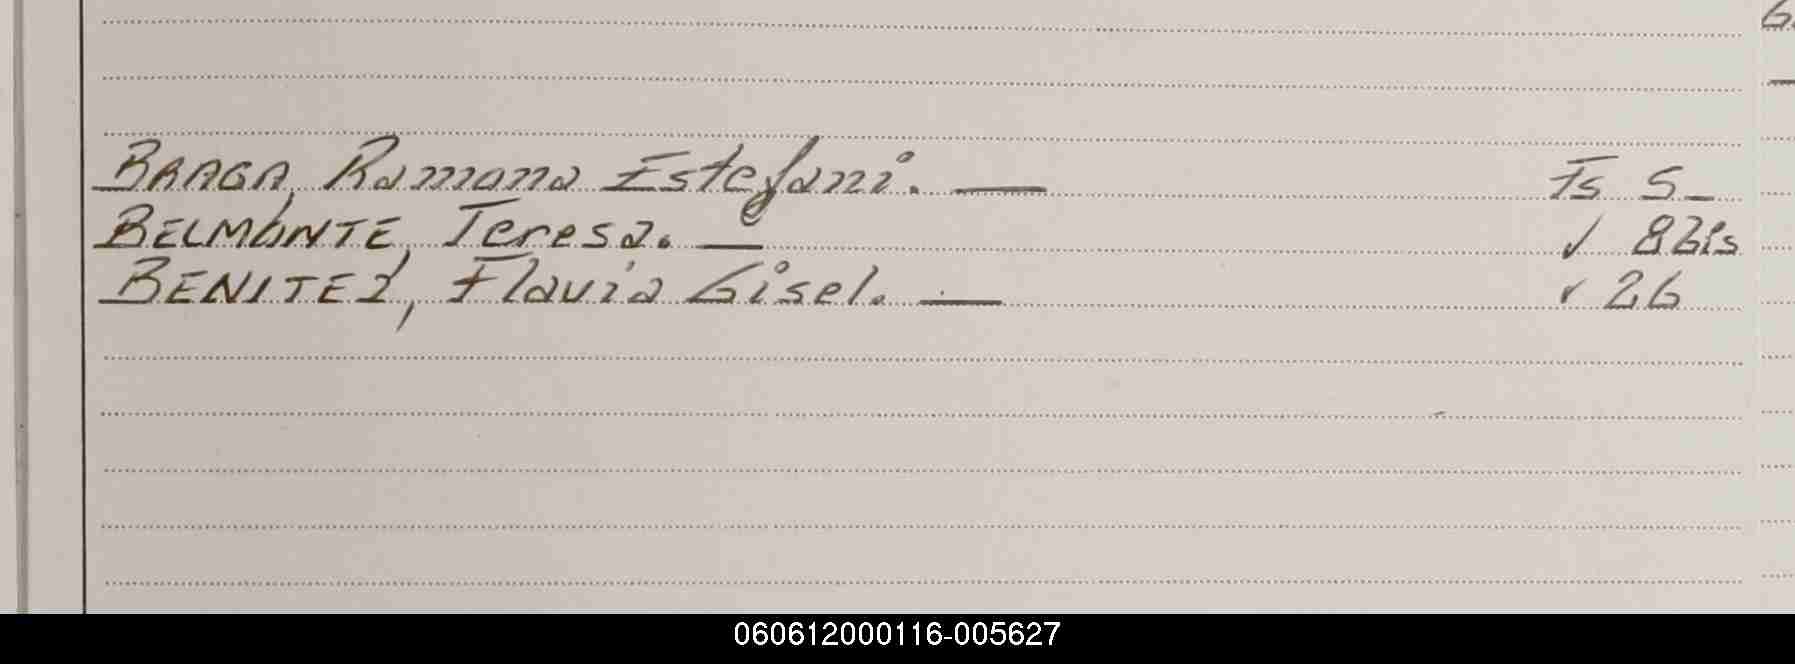 BRAGA, Ramona Estefani. — Fs 5 —
BELMONTE, Teresa. — ✓ 8 bis
BENITEZ, Flavia Gisel. — ✓ 26
060612000116-005627